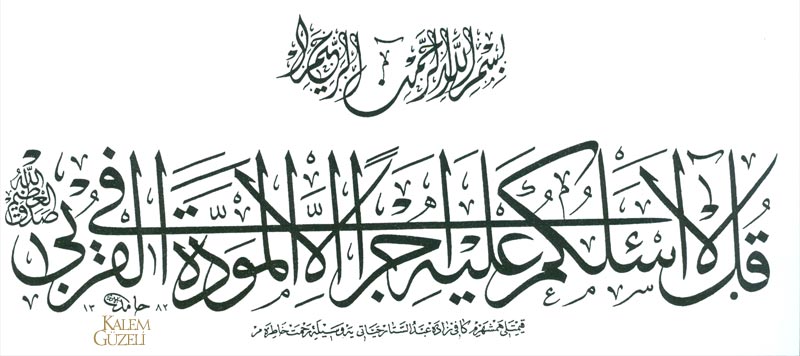 بسم الله الرحمن الرحيم
قُل لا أسئلكم عليه أجرًا إلا المودّة في القربى
صدق الله العظيم
حامد ١٣٨٢
KALEM
GÜZELİ